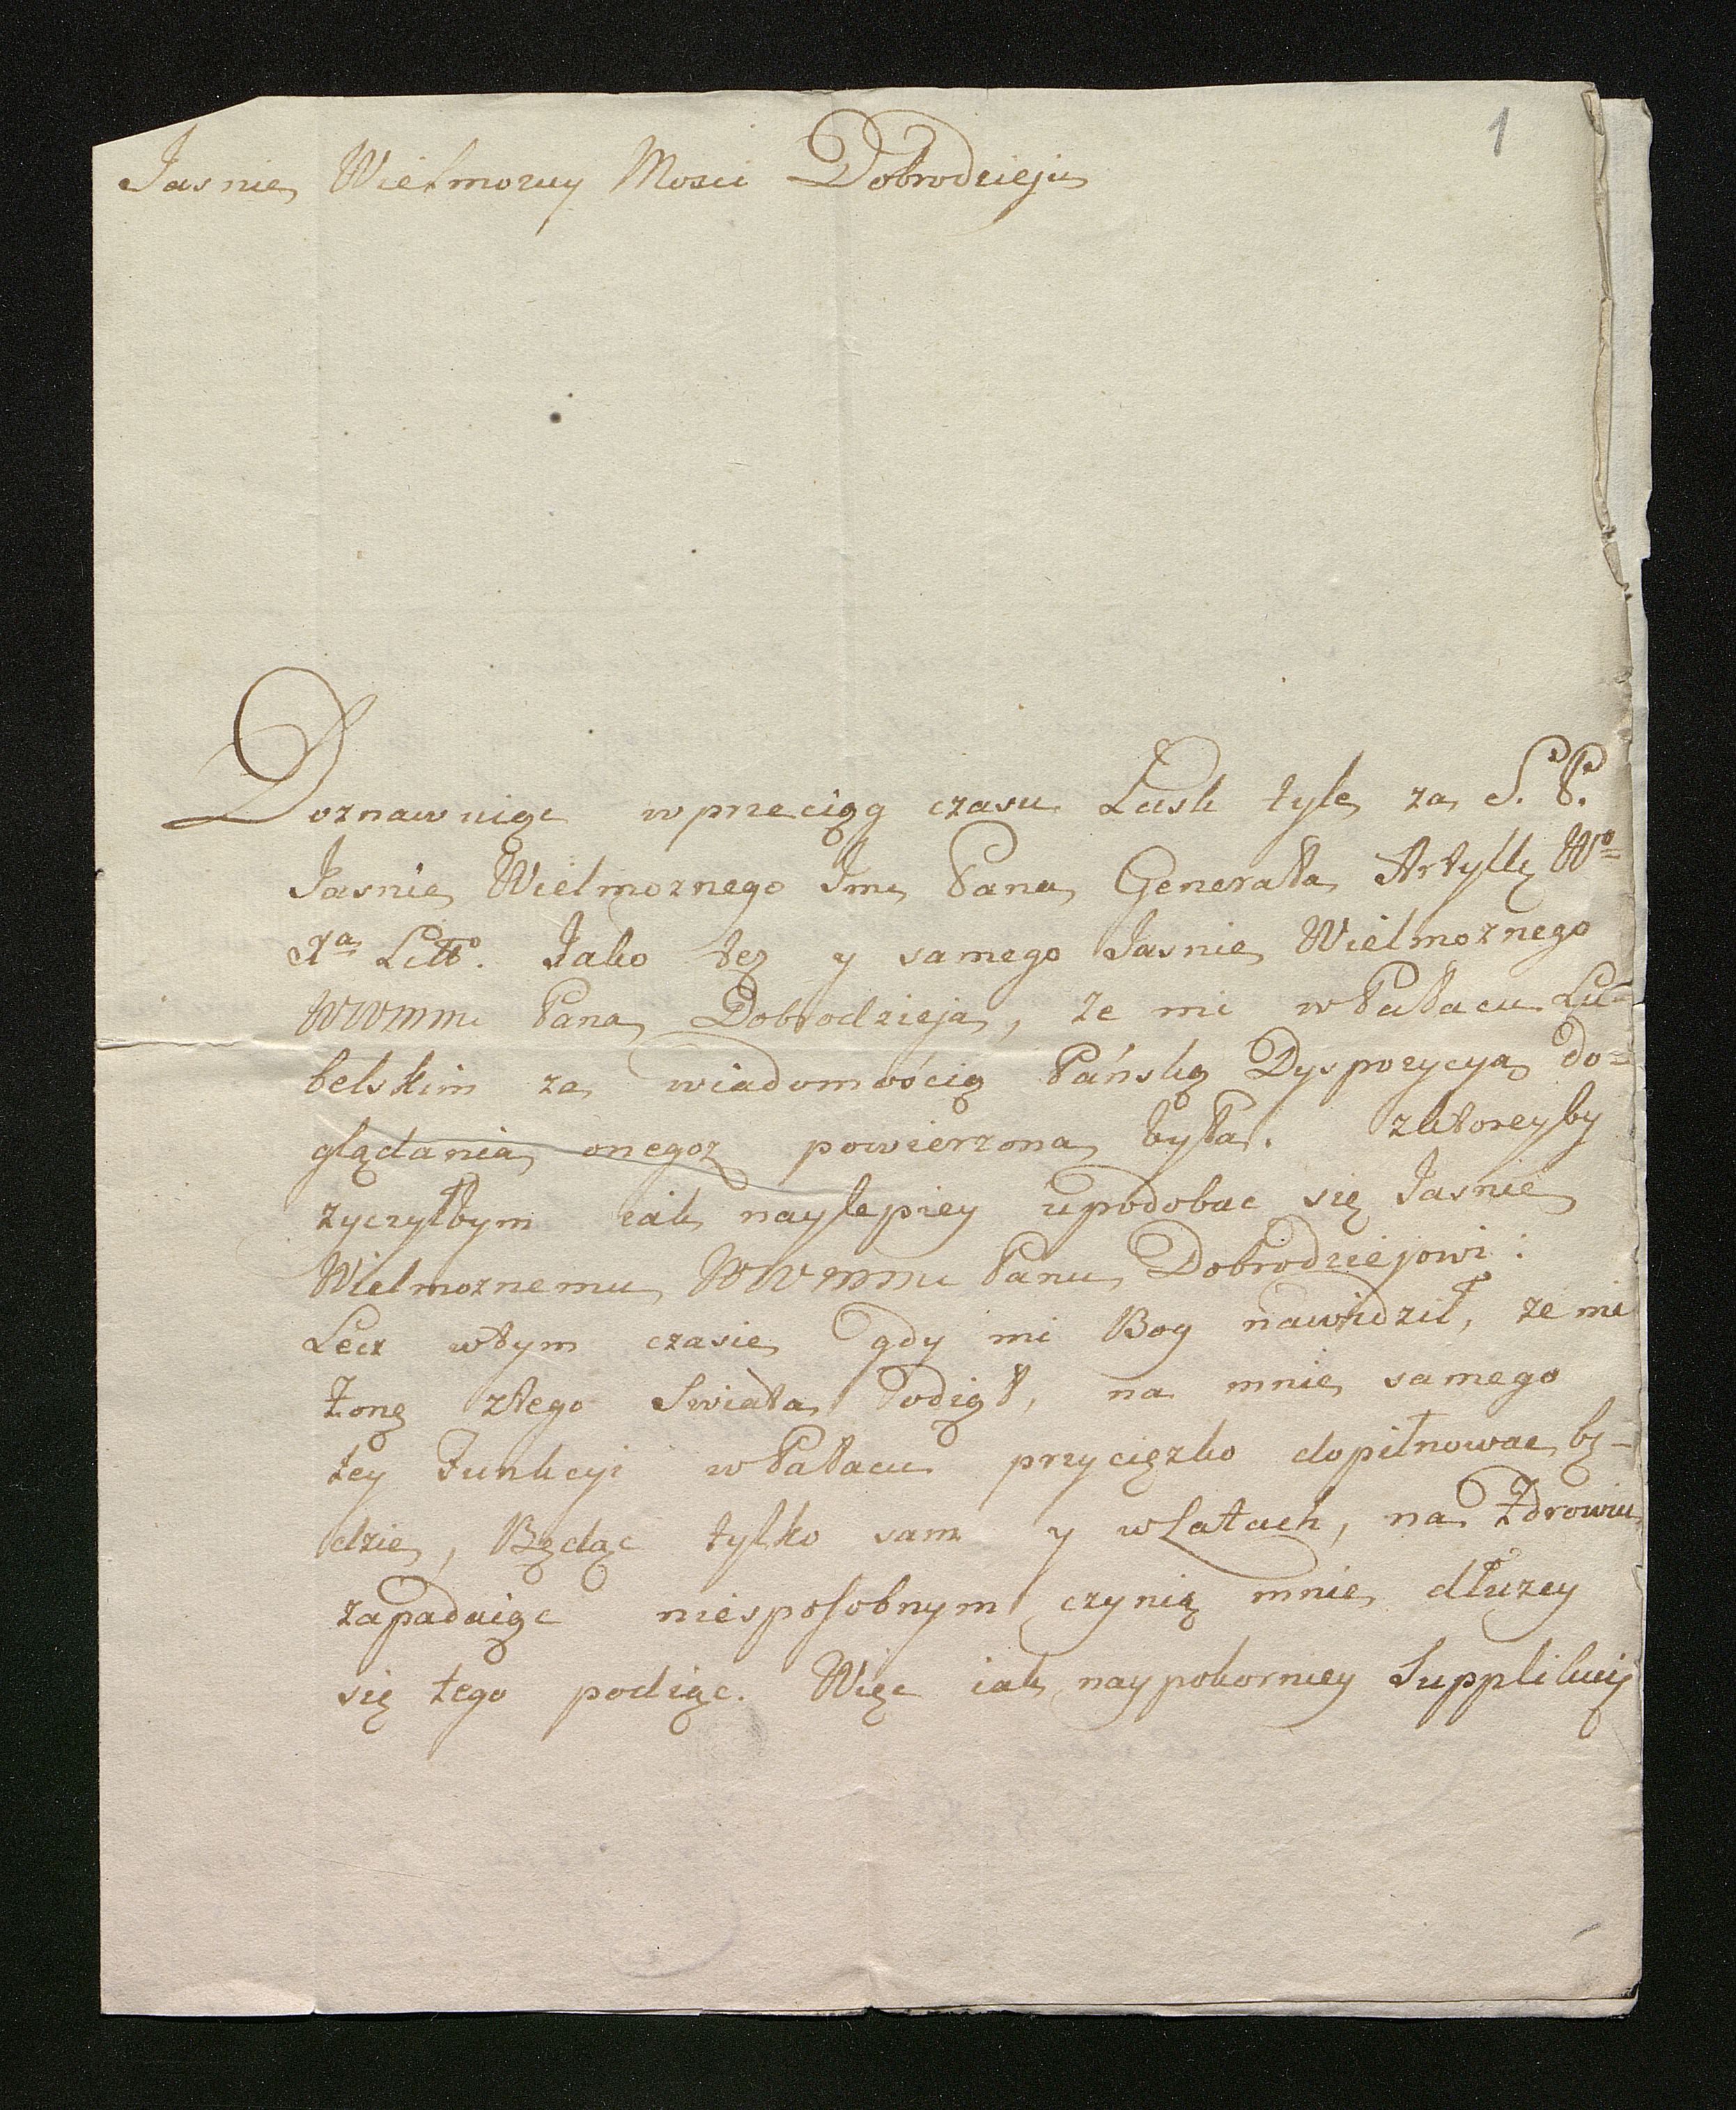 1
Jasnie Wielmozny Mosci Dobrodzieju
Doznawuiąc wprzeciąg czasu Łask tyle za S. P.
Jasnie Wielmoznego Jmci Pana Generała Artylly Wo=
Xa Litto. Jako tez y samego Jasnie Wielmoznego
WWmmci Pana Dobrodzieja, ze mi wPałacu Lu=
belskim za wiadomością Pańską Dyspozycya do=
glądania onegoz powierzona była. zktoreyby
zyczyłbym iak naylepiey upodobac się Jasnie
Wielmoznemu WWmmci Panu Dobrodziejowi:
Lecz wtym czasie gdy mi Bog nawidził, ze mi
Zonę ztego Swiata Podiął, na mnie samego
tey Funkcyi wPałacu przycięzko dopilnowac bę-
dzie, Będąc tylko sam y wLatach, na Zdrowiu
zapadaiąc niesposobnym czynią mnie dłuzey
się tego podiąc. Więc iak naypokorniey Supplikuię